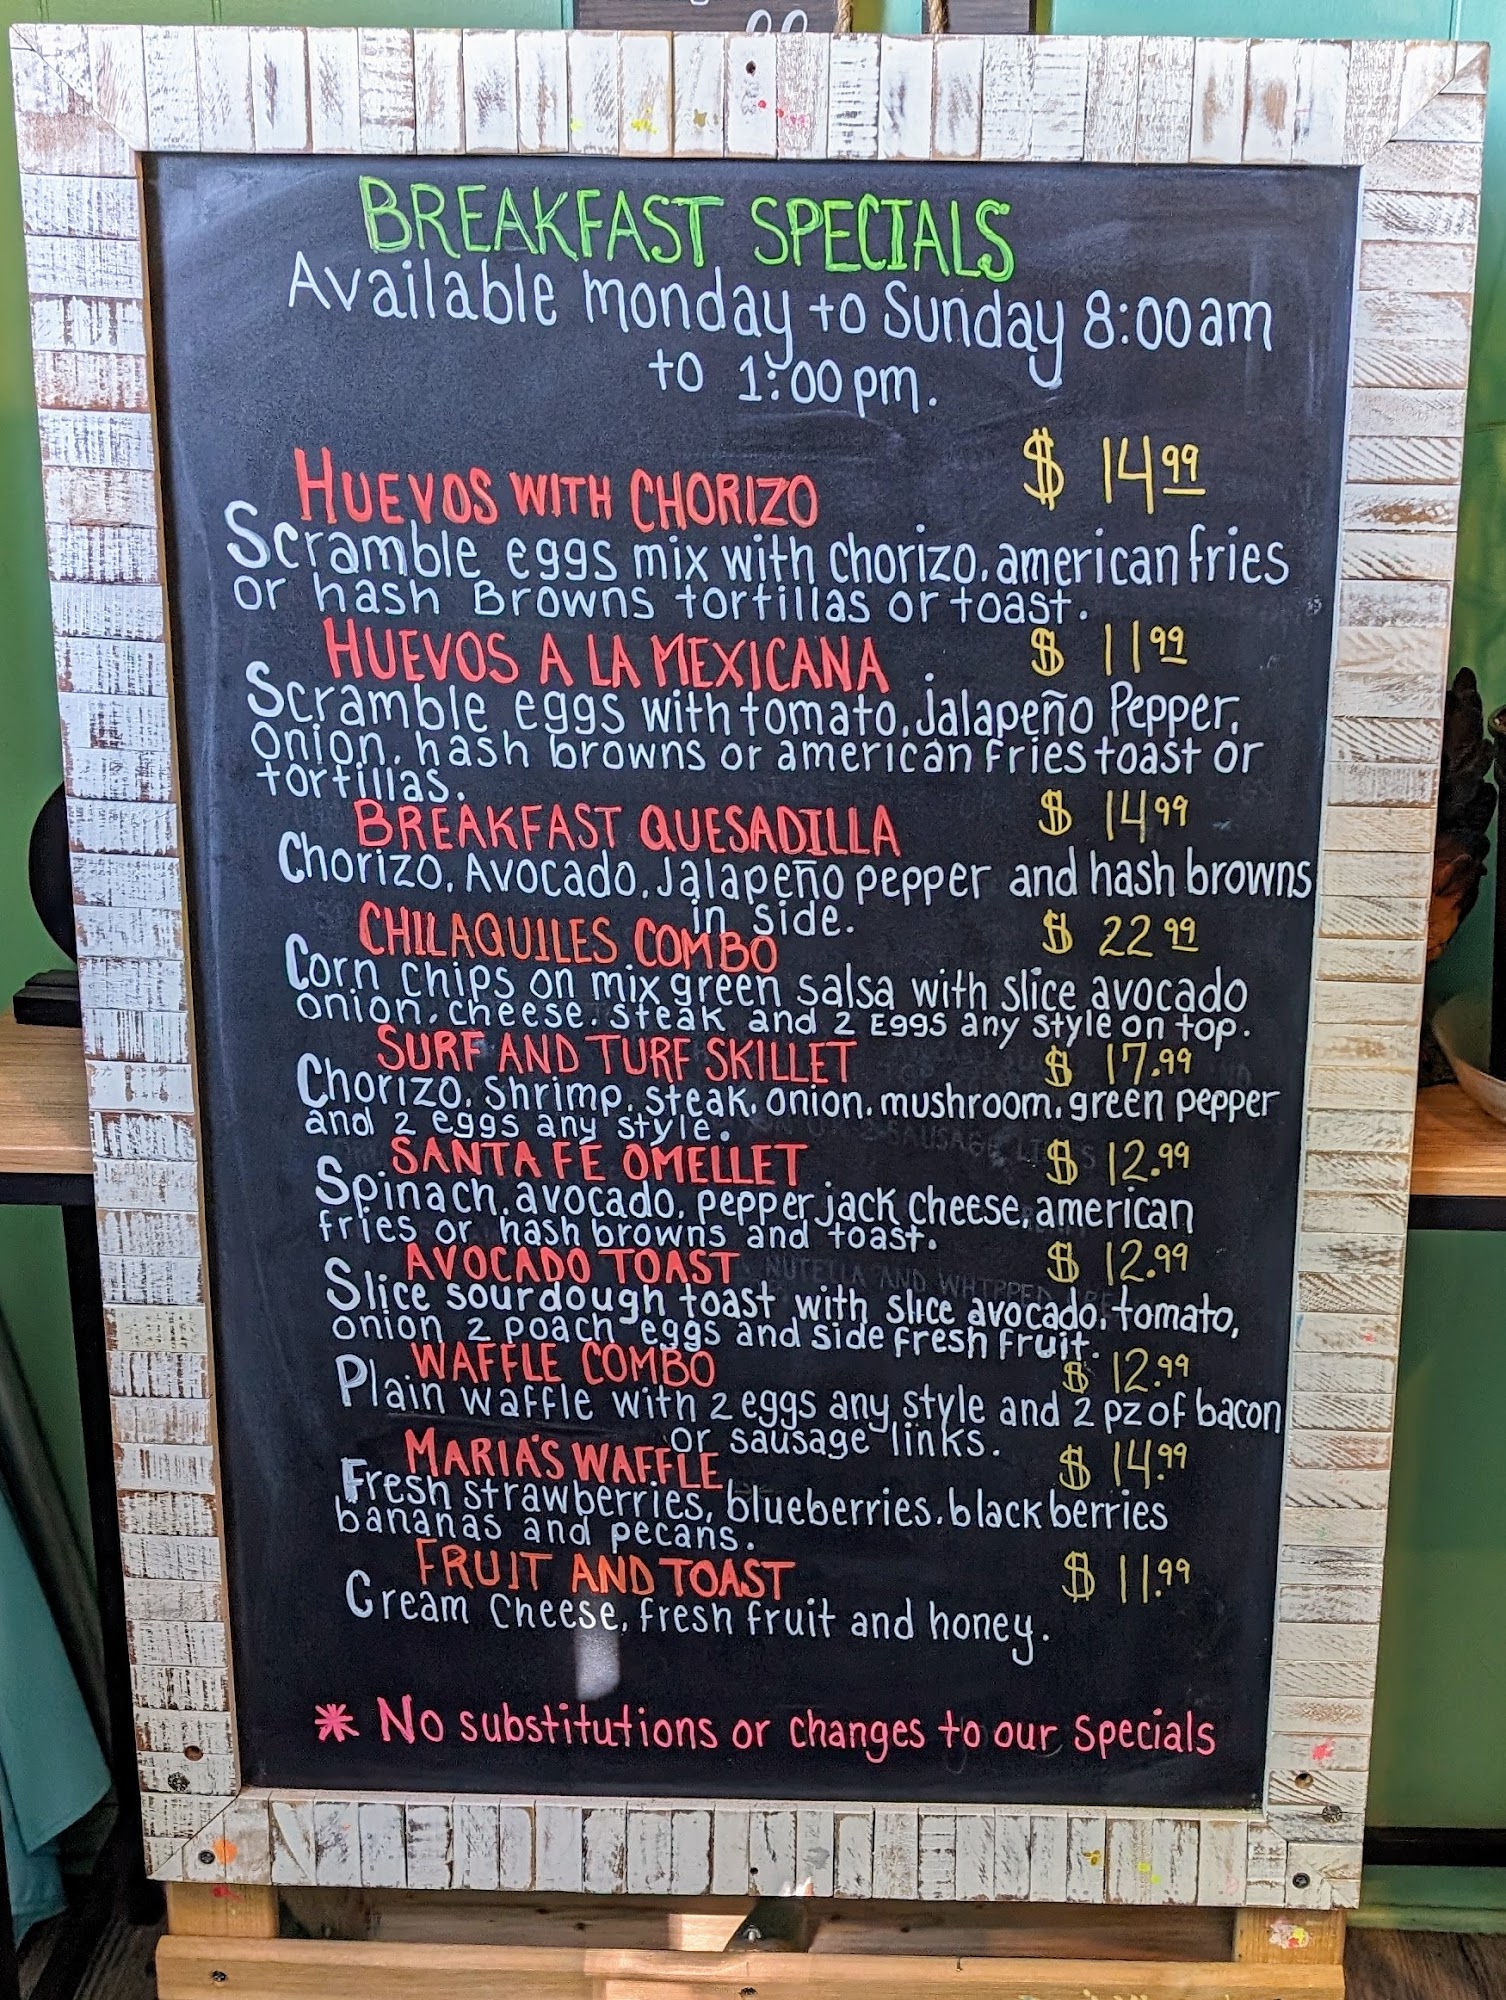 BREAKFAST SPECIALS
Available monday to Sunday 8:00am
to 1:00pm.
HUEVOS WITH CHORIZO $ 14.99
Scramble eggs mix with chorizo, american fries
or hash Browns tortillas or toast.
HUEVOS A LA MEXICANA $ 11.99
Scramble eggs with tomato, jalapeño Pepper,
onion, hash browns or american fries toast or
tortillas.
BREAKFAST QUESADILLA $ 14.99
Chorizo, Avocado, Jalapeño pepper and hash browns
in side.
CHILAQUILES COMBO $ 22.99
Corn chips on mix green salsa with slice avocado
onion, cheese, steak and 2 Eggs any style on top.
SURF AND TURF SKILLET $ 17.99
Chorizo, Shrimp, steak, onion, mushroom, green pepper
and 2 eggs any style.
SANTA FÉ OMELLET $ 12.99
Spinach, avocado, pepper jack cheese, american
fries or hash browns and toast.
AVOCADO TOAST $ 12.99
Slice sourdough toast with slice avocado, tomato,
onion 2 poach eggs and side fresh fruit.
WAFFLE COMBO $ 12.99
Plain waffle with 2 eggs any style and 2 pz of bacon
or sausage links.
MARIA'S WAFFLE $ 14.99
Fresh strawberries, blueberries, blackberries
bananas and pecans.
FRUIT AND TOAST $ 11.99
Cream cheese, fresh fruit and honey.
* No substitutions or changes to our Specials